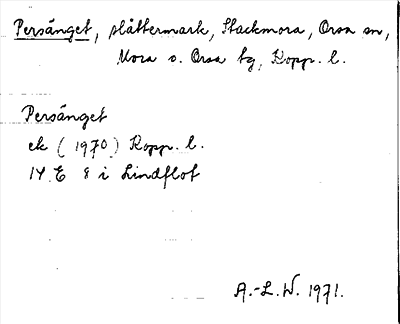 Persänget, slåttermark, Stackmora, Orsa sn,
Mora o. Orsa tg, Kopp. l.
Persänget
ek (1970) Kopp. l.
14 E 8 i Lindflot
A.-L. W. 1971.